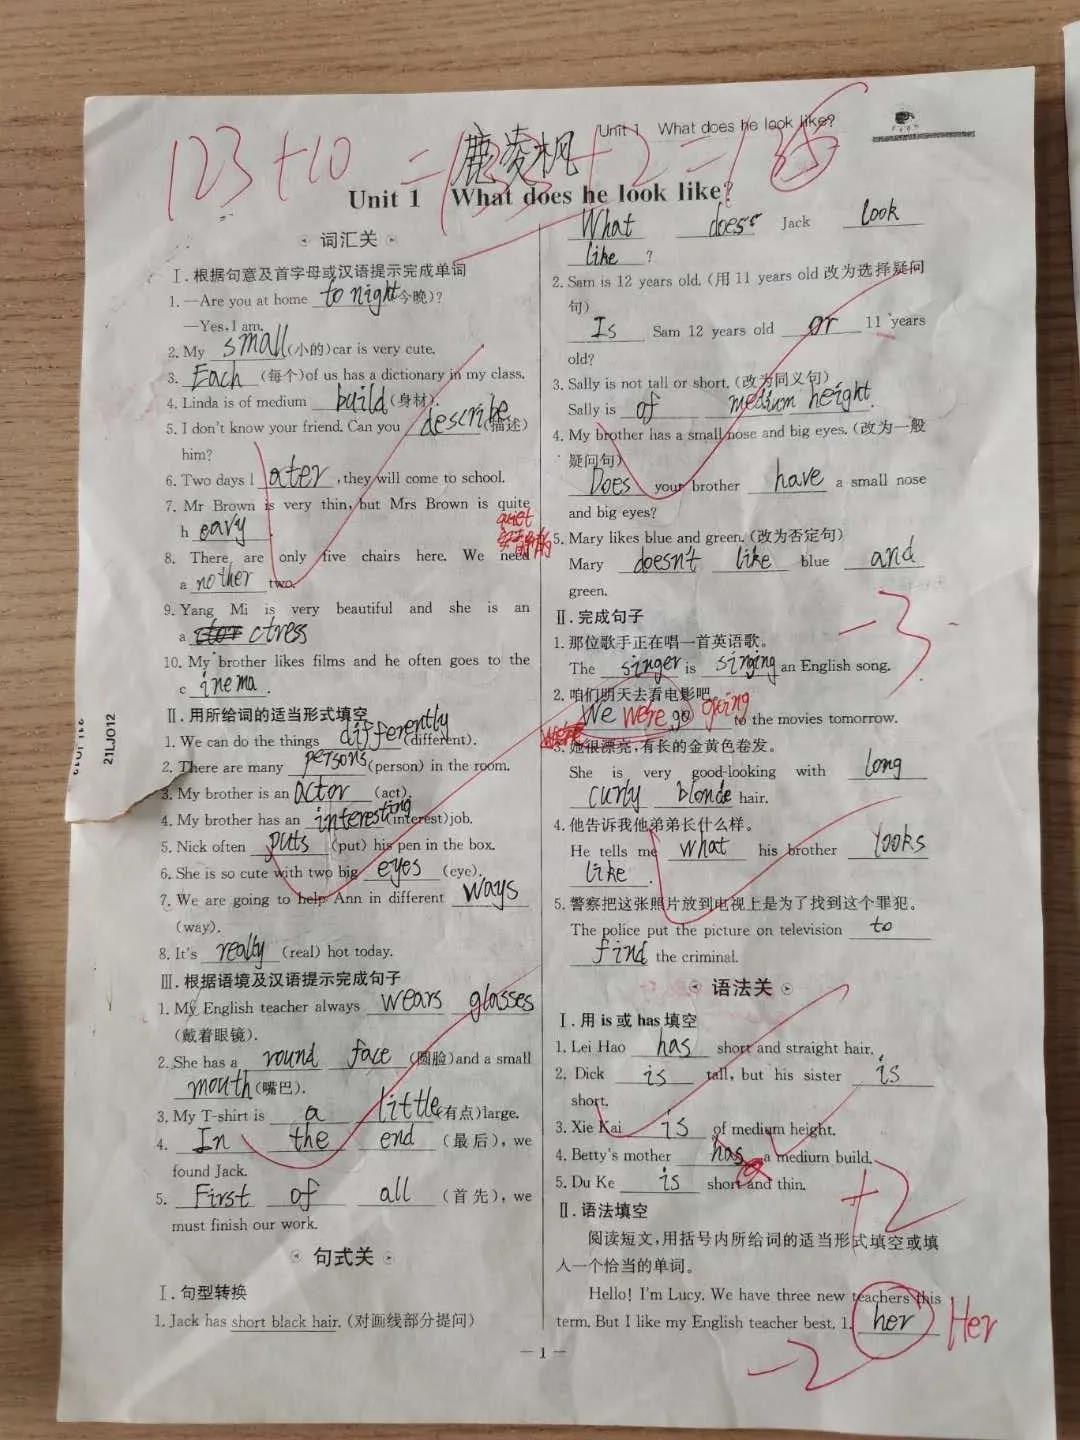 Unit 1 What does he look like?
123+10=133+2=135
鹿凌枫
Unit 1 What does he look like?
词汇关
Ⅰ.根据句意及首字母或汉语提示完成单词
1.—Are you at home to night(今晚)?
—Yes, I am.
2. My small(小的)car is very cute.
3. Each(每个)of us has a dictionary in my class.
4. Linda is of medium build(身材).
5. I don't know your friend. Can you describe(描述)
him?
6. Two days later, they will come to school.
7. Mr Brown is very thin, but Mrs Brown is quite
heavy.
quiet
安静的
8. There are only five chairs here. We need
another two.
9. Yang Mi is very beautiful and she is an
a ctress
10. My brother likes films and he often goes to the
cinema.
Ⅱ.用所给词的适当形式填空
1. We can do the things differently(different).
2. There are many persons(person) in the room.
3. My brother is an actor (act).
4. My brother has an interesting(interest)job.
5. Nick often puts (put) his pen in the box.
6. She is so cute with two big eyes (eye).
7. We are going to help Ann in different ways
(way).
8. It's really (real) hot today.
Ⅲ.根据语境及汉语提示完成句子
1. My English teacher always wears glasses
(戴着眼镜).
2. She has a round face (圆脸)and a small
mouth(嘴巴).
3. My T-shirt is a little(有点)large.
4. In the end (最后), we
found Jack.
5. First of all (首先), we
must finish our work.
句式关
Ⅰ.句型转换
1. Jack has short black hair. (对画线部分提问)
What does Jack look
like ?
2. Sam is 12 years old. (用 11 years old 改为选择疑问
句)
Is Sam 12 years old or 11 years
old?
3. Sally is not tall or short. (改为同义句)
Sally is of medium height.
4. My brother has a small nose and big eyes. (改为一般
疑问句)
Does your brother have a small nose
and big eyes?
5. Mary likes blue and green. (改为否定句)
Mary doesn't like blue and
green.
-3
Ⅱ.完成句子
1. 那位歌手正在唱一首英语歌。
The singer is singing an English song.
2. 咱们明天去看电影吧。
We were go going to the movies tomorrow.
3. 她很漂亮,有长的金黄色卷发。
She is very good-looking with long
curly blonde hair.
4. 他告诉我他弟弟长什么样。
He tells me what his brother looks
like.
5. 警察把这张照片放到电视上是为了找到这个罪犯。
The police put the picture on television to
find the criminal.
语法关
Ⅰ.用 is 或 has 填空
1. Lei Hao has short and straight hair.
2. Dick is tall, but his sister is
short.
3. Xie Kai is of medium height.
4. Betty's mother has a medium build.
5. Du Ke is short and thin.
+2
Ⅱ.语法填空
阅读短文,用括号内所给词的适当形式填空或填
入一个恰当的单词。
Hello! I'm Lucy. We have three new teachers this
term. But I like my English teacher best. 1. her Her
-2
— 1 —
21LJ012